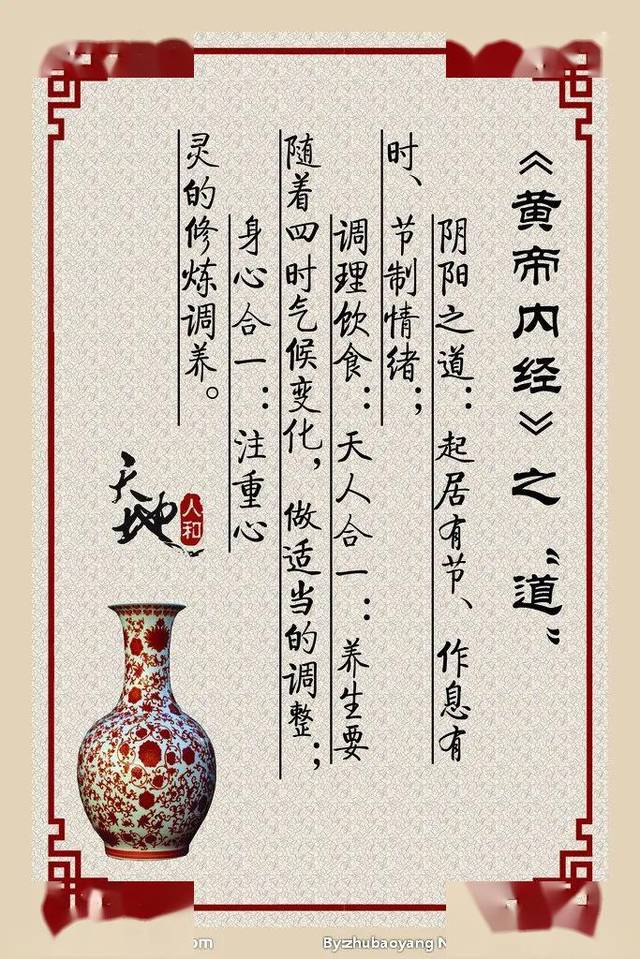 《黄帝内经》之“道”
阴阳之道：起居有节、作息有
时、节制情绪；
调理饮食：天人合一：养生要
随着四时气候变化，做适当的调整；
身心合一：注重心
灵的修炼调养。
天地
人和
By:zhubaoyang N